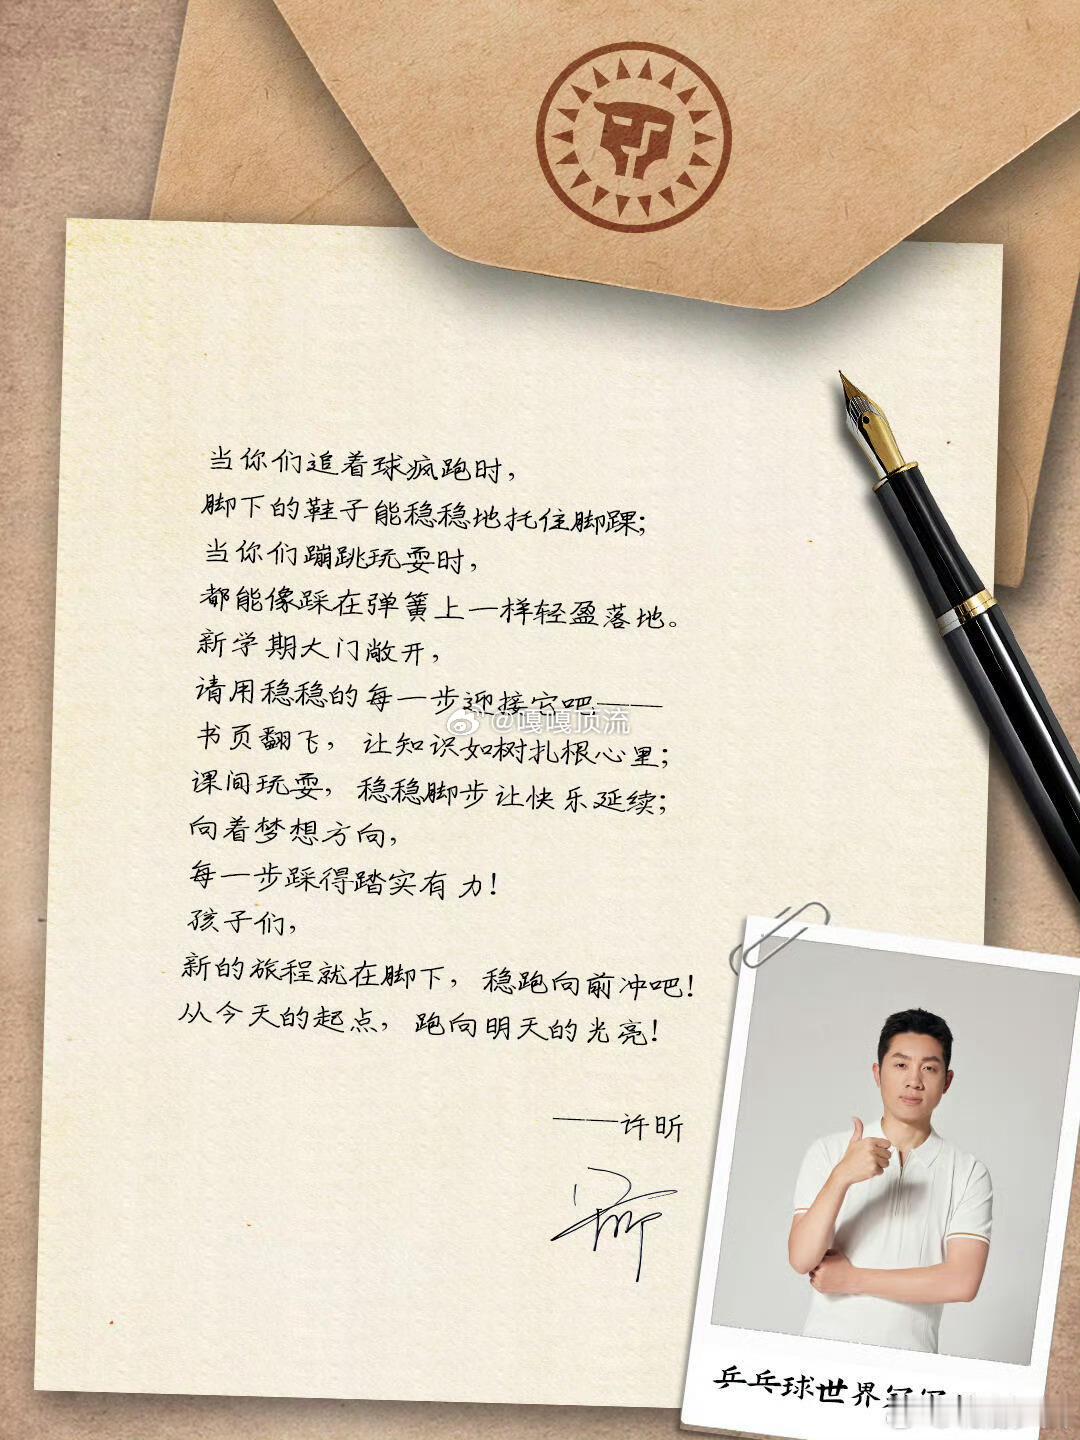 当你们追着球疯跑时，
脚下的鞋子能稳稳地托住脚踝；
当你们蹦跳玩耍时，
都能像踩在弹簧上一样轻盈落地。
新学期大门敞开，
请用稳稳的每一步迎接它吧——
@嘎嘎顶流
书页翻飞，让知识如树扎根心里；
课间玩耍，稳稳脚步让快乐延续；
向着梦想方向，
每一步踩得踏实有力！
孩子们，
新的旅程就在脚下，稳跑向前冲吧！
从今天的起点，跑向明天的光亮！
——许昕
乒乓球世界冠军